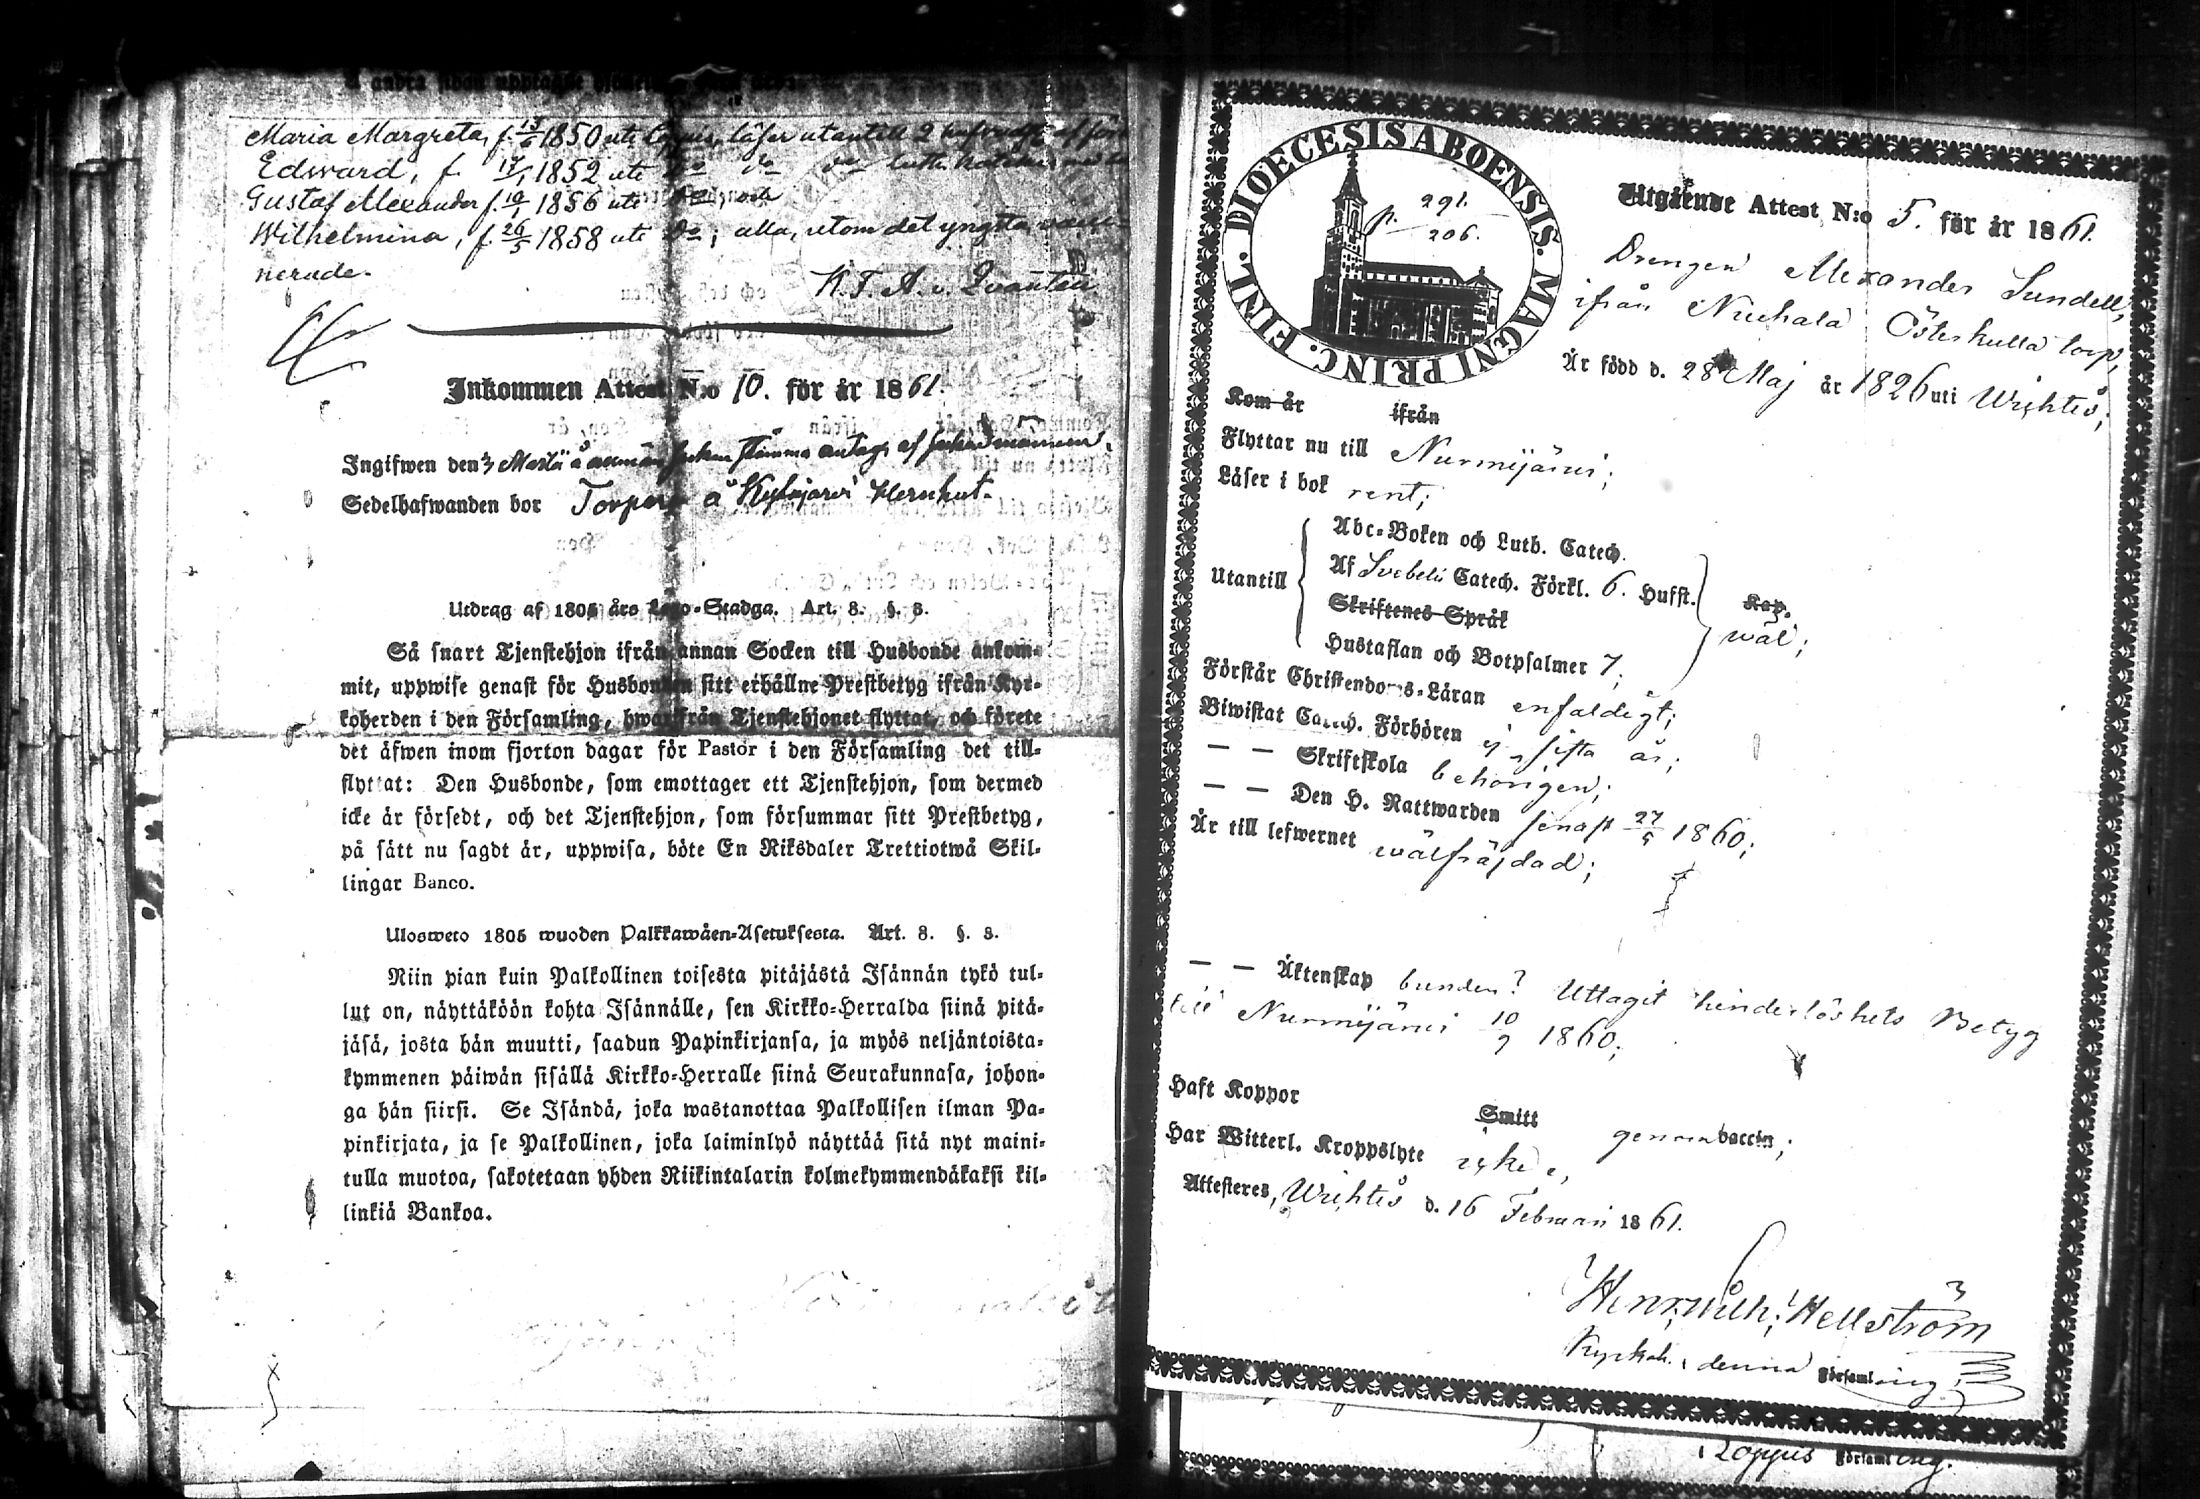 Maria Margreta, f. 13/6 1850 uti Loppis, läser utantill 2 hufvudst. af
Edward, f. 17/1 1852 uti Do Do Do Luth. Kateches
Gustaf Alexander f. 10/1 1856 uti Do, och
Wilhelmina, f. 26/5 1858 uti Do; alla, utom det yngsta, vacci-
nerade.
K. T. A. v. Qvanten
Inkommen Attest N:o 10. för år 1861.
Ingifwen den 3 Mars å allmän sockenstämma antags af sockenmännen.
Sedelhafwanden bor Torpare å Kytäjärvi Hernhut.
Utdrag af 1805 års Lego-Stadga. Art. 8. §. 8.
Så snart Tjenstehjon ifrån annan Socken till Husbonde ankom-
mit, uppwise genast för Husbonden sitt erhållne Prestbetyg ifrån Kyr-
koherden i den Församling, hwarifrån Tjenstehjonet flyttat, och förete
det äfwen inom fjorton dagar för Pastor i den Församling det till-
flyttat: Den Husbonde, som emottager ett Tjenstehjon, som dermed
icke är försedt, och det Tjenstehjon, som försummar sitt Prestbetyg,
på sätt nu sagdt är, uppwisa, böte En Riksdaler Trettiotwå Skil-
lingar Banco.
Ulosweto 1805 wuoden Palkkawäen-Asetuksesta. Art. 8. §. 8.
Niin pian kuin Palkollinen toisesta pitäjästä Isännän tykö tul-
lut on, näyttäköön kohta Isännälle, sen Kirkko-Herralda siinä pitä-
jäsä, josta hän muutti, saadun Papinkirjansa, ja myös neljäntoista-
kymmenen päiwän sisällä Kirkko-Herralle siinä Seurakunnasa, johon-
ga hän siirsi. Se Isändä, joka wastanottaa Palkollisen ilman Pa-
pinkirjata, ja se Palkollinen, joka laiminlyö näyttää sitä nyt maini-
tulla muotoa, sakotetaan yhden Riikintalarin kolmekymmendäkaksi kil-
linkiä Bankoa.
DIOECESIS ABOENSIS. MAGNI PRINC. FINL.
p. 291.
206.
Utgående Attest N:o 5. för år 1861.
Drengen Alexander Sundell,
ifrån Nuhala Österkulla torp,
Är född d. 28 Maj år 1826 uti Wichtis;
Kom år ifrån
Flyttar nu till Nurmijärvi;
Läser i bok rent;
Utantill
Abc-Boken och Luth. Catech.
Af Svebelii Catech. Förkl. 6. Hufst.
Skriftenes Språk
Hustaflan och Botpsalmer 7;
Kap.
wäl;
Förstår Christendoms-Läran enfaldigt;
Biwistat Catech. Förhören ej sista år;
— — Skriftskola behörigen;
— — Den H. Nattwarden senast 27/5 1860;
Är till lefwernet wälfräjdad;
— — Äktenskap bunden? Uttagit hinderlöshets Betyg
till Nurmijärvi 10/9 1860;
Haft Koppor Smitt genom vaccin;
Har Witterl. Kroppslyte icke;
Attesteres, Wichtis d. 16 Februari 1861.
Henr. Wilh. Hellström
Kyrkoh. i denna Församling.
Loppis Församling.